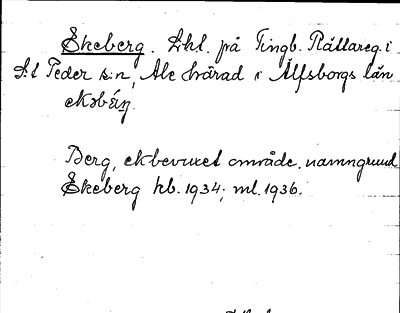 Ekeberg. Lhl. på Tingb. Rättareg. i
S:t Peder s:n, Ale härad i Älfsborgs län
ekəbæ̂rj.
Berg, ekbevuxet område, namngrund
Ekeberg hb. 1934; ml. 1936.